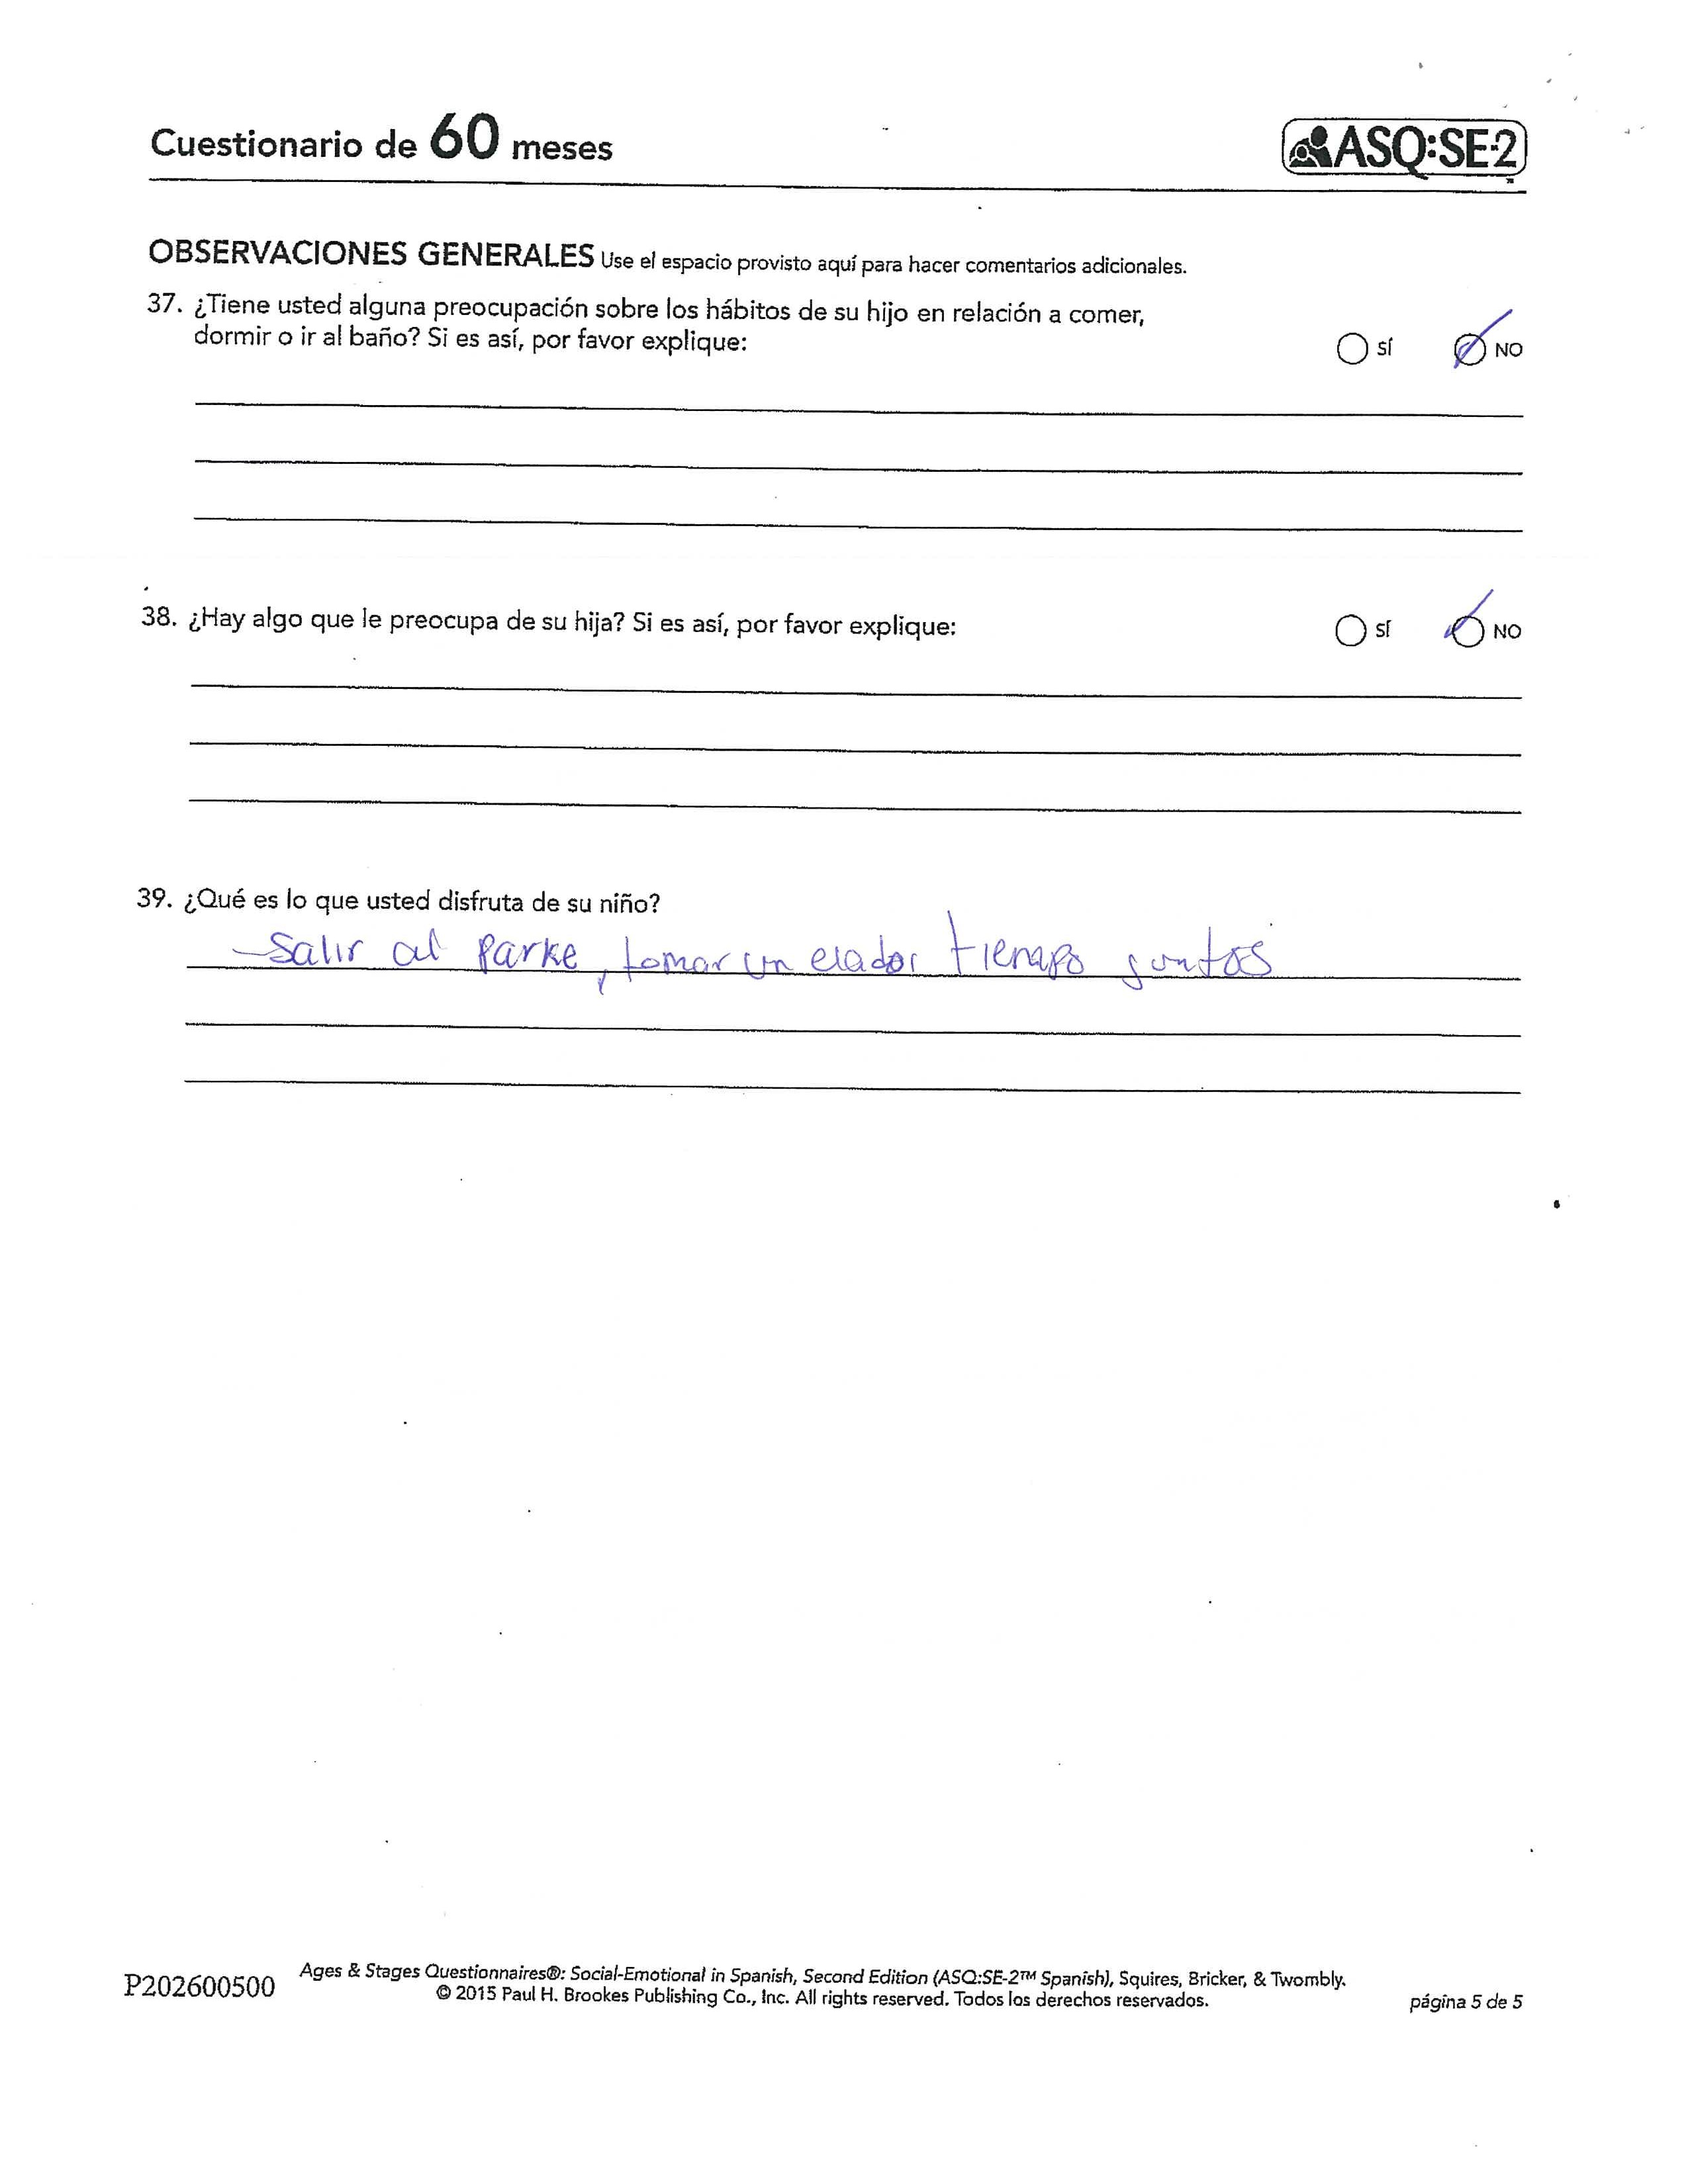 Cuestionario de 60 meses
ASQ:SE-2
OBSERVACIONES GENERALES Use el espacio provisto aquí para hacer comentarios adicionales.
37. ¿Tiene usted alguna preocupación sobre los hábitos de su hijo en relación a comer,
dormir o ir al baño? Si es así, por favor explique:
SÍ NO
38. ¿Hay algo que le preocupa de su hija? Si es así, por favor explique:
SÍ NO
39. ¿Qué es lo que usted disfruta de su niño?
Salir al Parke, tomar un elador tiempo juntos
Ages & Stages Questionnaires®: Social-Emotional in Spanish, Second Edition (ASQ:SE-2™ Spanish), Squires, Bricker, & Twombly.
P202600500
© 2015 Paul H. Brookes Publishing Co., Inc. All rights reserved. Todos los derechos reservados.
página 5 de 5